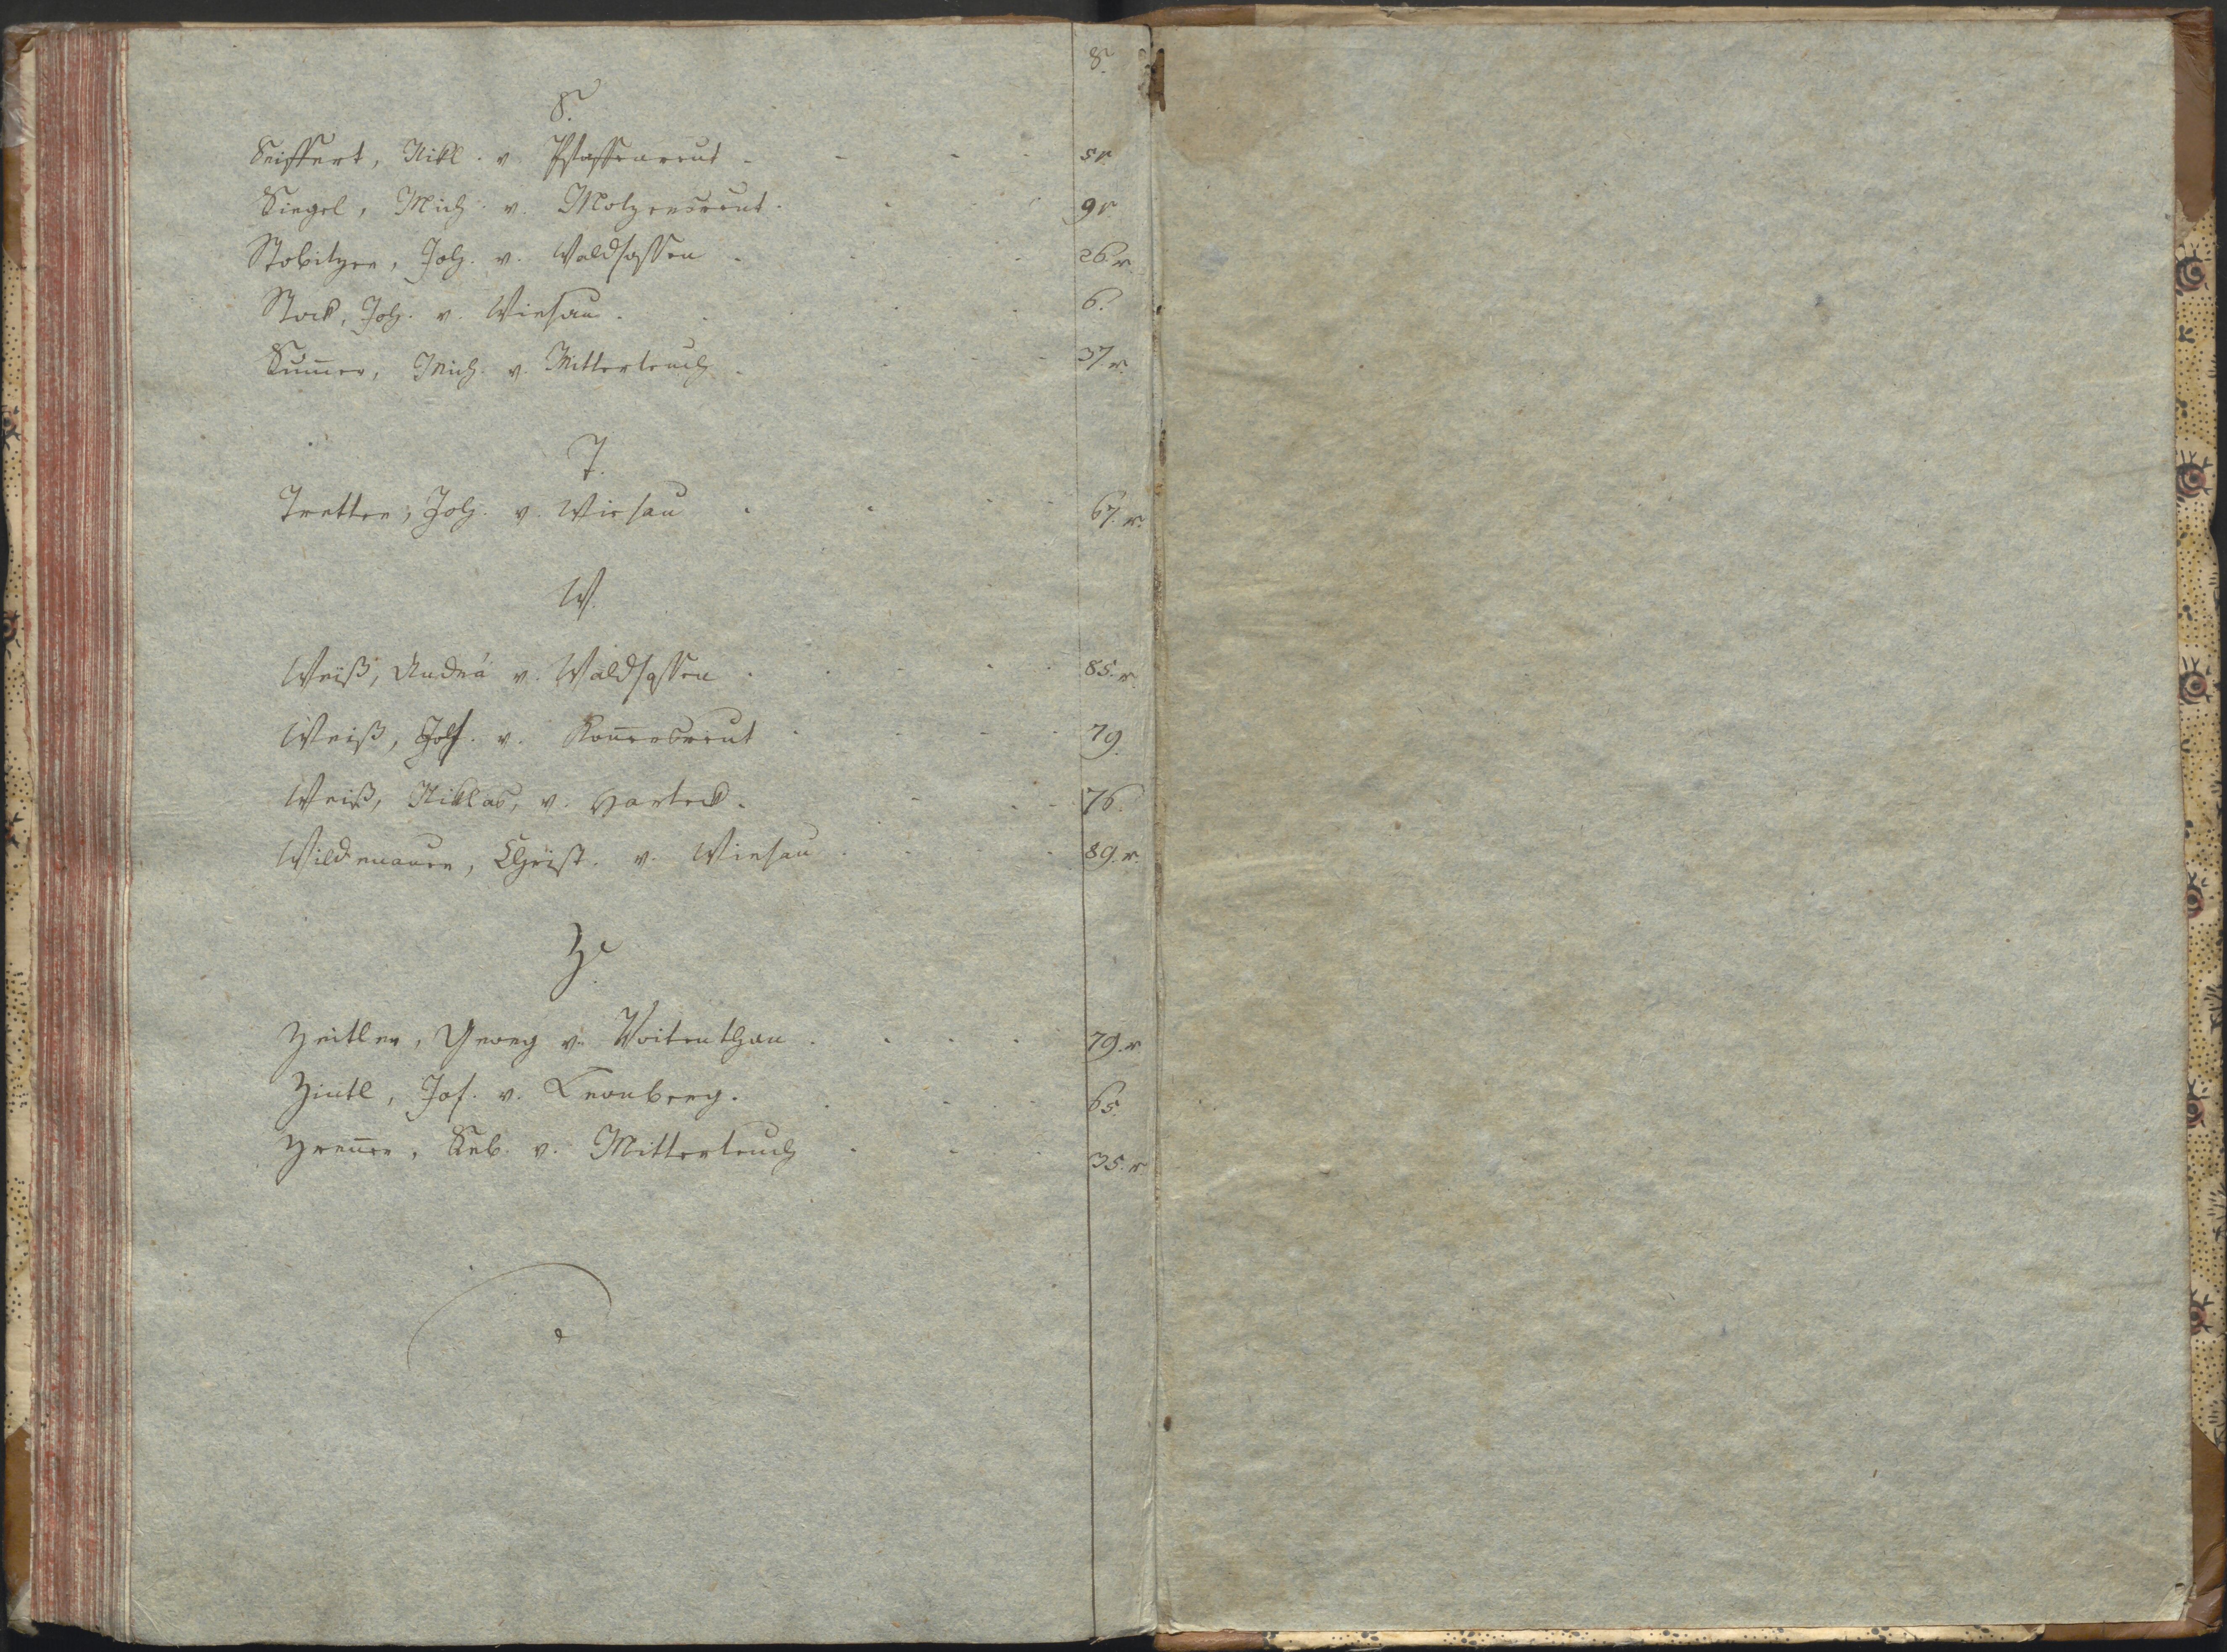 S.
S.
Seiffert, Nikl. v. Pfaffenreut - - - - 5 r.
Siegel, Mich. v. Motzersreut. - - - 9 r.
Stobitzer, Joh. v. Waldsassen - - - 26 r.
Stock, Joh. v. Wiesau. - - - - 6.
Sum̄er, Mich. v. Mitterteich - - - 37 r.
T.
Tretter, Joh. v. Wiesau - - - - 67. r.
W.
Weiß, Andrä v. Waldsassen - - - - 85. r.
Weiß, Joh. v. Kon̄ersreut - - - - 79.
Weiß, Niklas, v. Harteck. - - - 76.
Wildenauer, Christ. v. Wiesau - - - 89. r.
Z.
Zeitler, Georg v. Voitenthan - - - - 79. r.
Zintl, Jos. v. Leonberg. - - - - 65.
Zren̄er, Seb. v. Mitterteich - - - - 35. r.